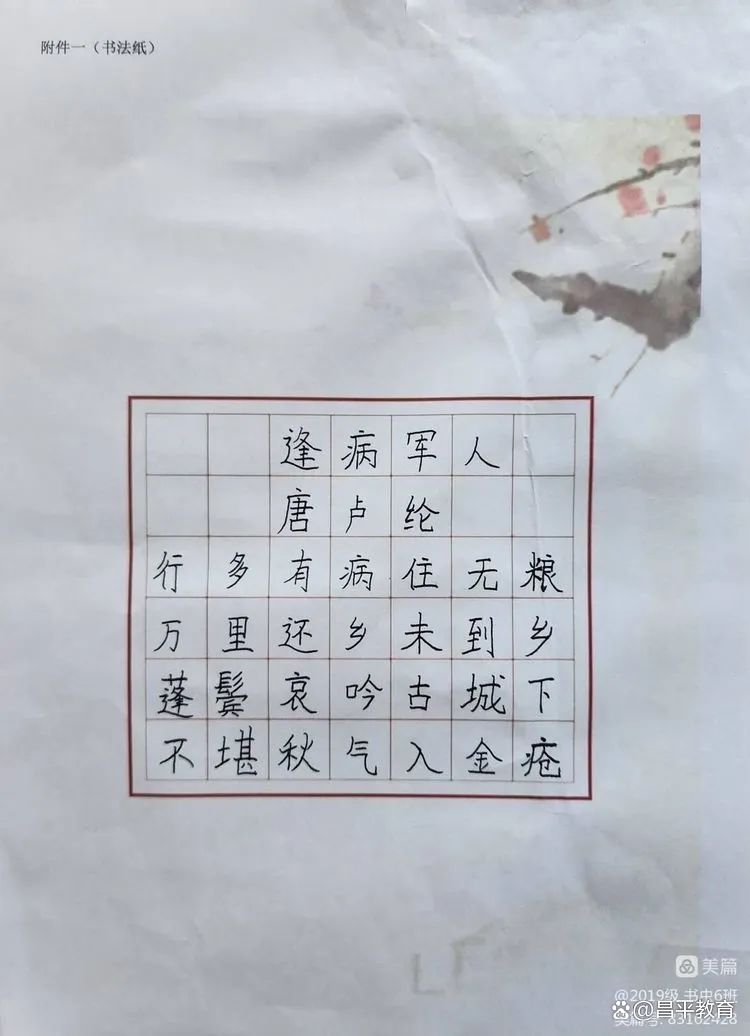 附件一（书法纸）
逢病军人
唐卢纶
行多有病住无粮
万里还乡未到乡
蓬鬓哀吟古城下
不堪秋气入金疮
美篇
@2019级 书虫6班
@昌平教育
美篇号: 83102428